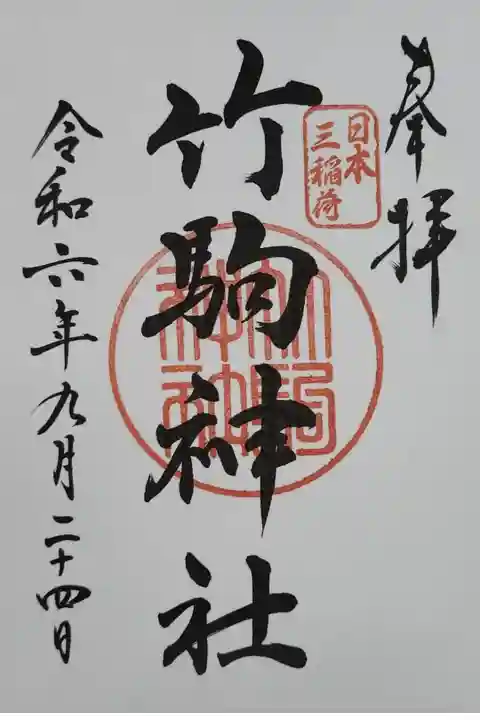 奉拝
日本
三稲荷
竹駒神社
竹駒
神社
令和六年九月二十四日